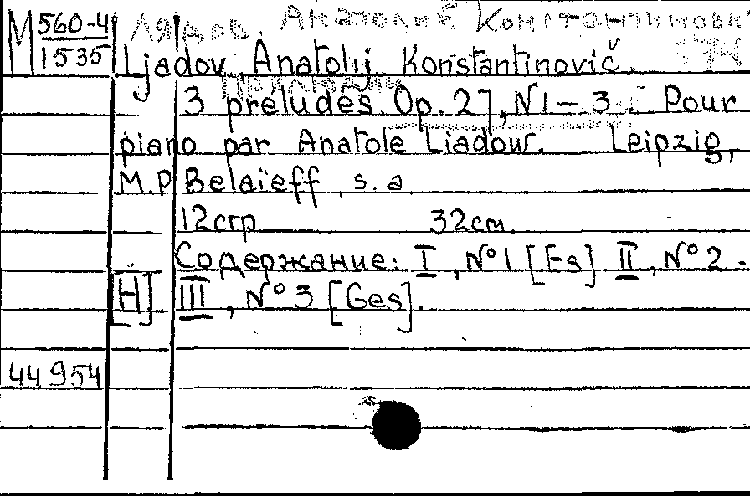 М 560-4
1535
Лядов, Анатолий Константинович
Ljadov, Anatolij Konstantinovič.
3 preludes Op. 27, N1 – 3. Pour
piano par Anatole Liadow. Leipzig,
M.P. Belaïeff, s. a.
12 стр 32 см.
Содержание: I, N°1 [Es] II, N°2 -
[H] III, N°3 [Ges].
44 954